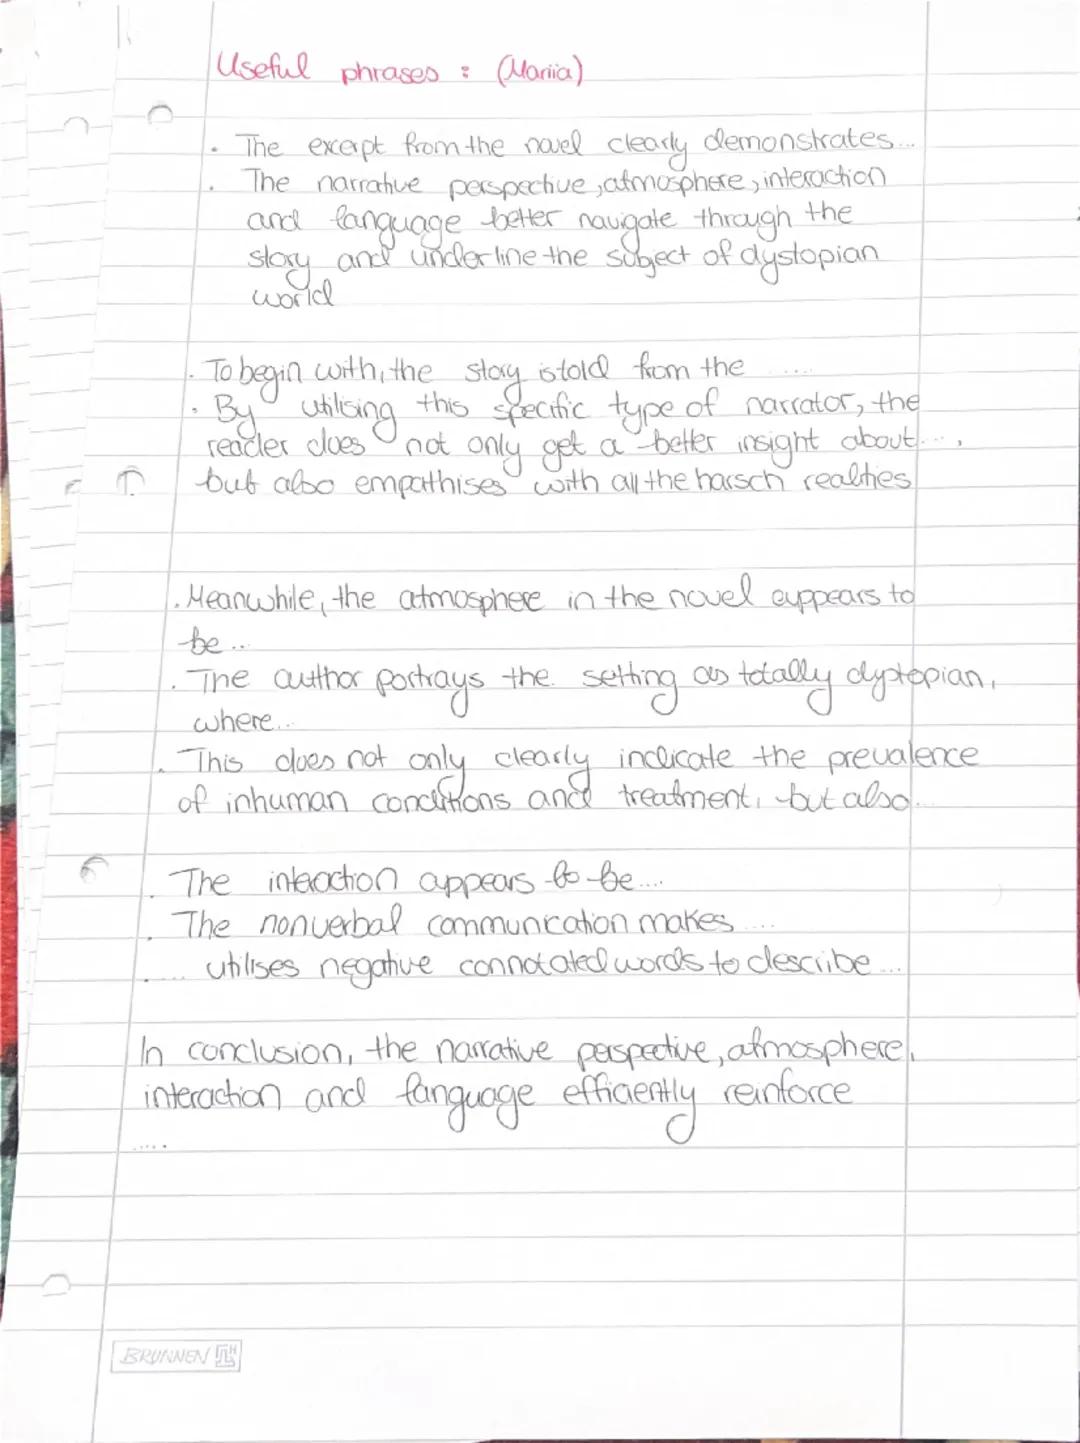 Useful phrases : (Mariia)
. The exerpt from the novel clearly demonstrates...
. The narrative perspective, atmosphere, interaction
and language better navigate through the
story and underline the subject of dystopian
world
. To begin with, the story is told from the .....
. By utilising this specific type of narrator, the
reader does not only get a better insight about...,
but also empathises with all the harsch realities
. Meanwhile, the atmosphere in the novel appears to
be...
. The author portrays the setting as totally dyptopian,
where...
. This does not only clearly indicate the prevalence
of inhuman conditions and treatment, but also...
. The interaction appears to be....
. The nonverbal communication makes ....
. .... utilises negative connotated words to describe...
In conclusion, the narrative perspective, atmosphere,
interaction and language efficiently reinforce
.....
BRUNNEN